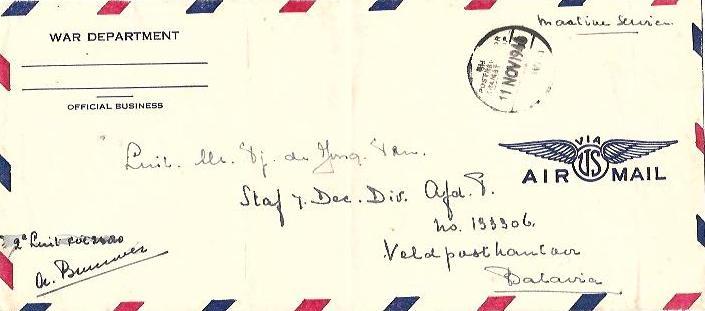 WAR DEPARTMENT
OFFICIAL BUSINESS
Maritime Service
11 NOV 1946
VIA
US
AIR MAIL
Luit. Mr. Dj. de Jong.
Staf 7. Dec. Div. Afd. P.
no. 133306
Veldpostkantoor
Batavia
2e Luit